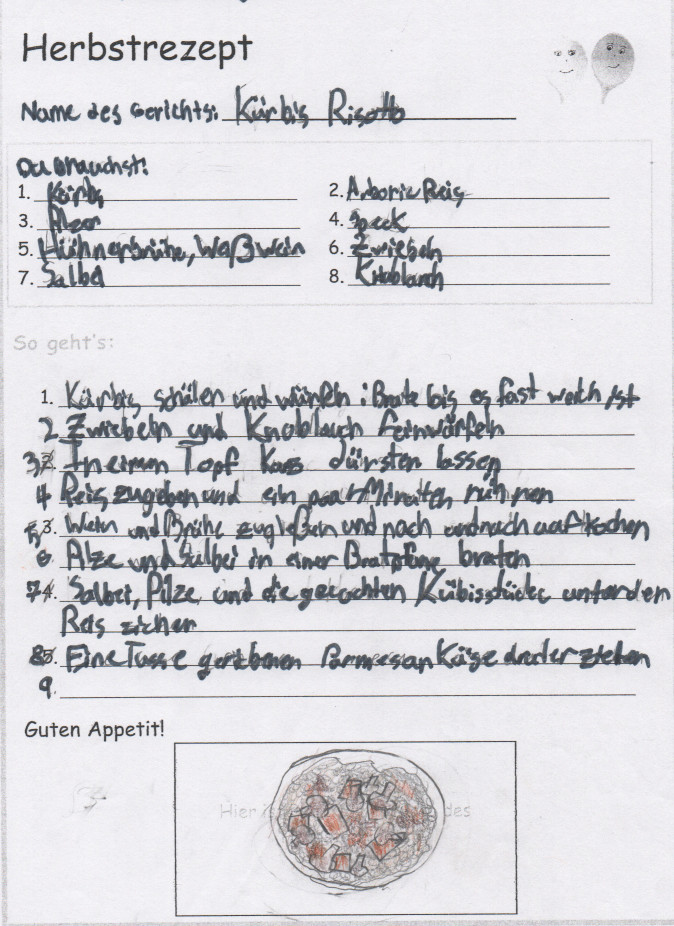 Herbstrezept
Name des Gerichts: Kürbis Risotto
Du brauchst:
1. Kürbis 2. Arborio Reis
3. Pilze 4. Speck
5. Hühnerbrühe, Waßwein 6. Zwiebeln
7. Salbei 8. Knoblauch
So geht's:
1. Kürbis schälen und würfeln: Brate bis es fast weich ist
2 Zwiebeln und Knoblauch feinwürfeln
3, In einem Topf Kurz dürsten lassen
4 Reis zugeben und ein paar Minuten rühren
5, Wein und Brühe zugießen und nach und nach aufkochen
6 Pilze und Salbei in einer Bratpfane braten
7 Salbei, Pilze und die gekochten Kübisstücke unter den
Reis zichen
8 Eine Tasse geriebenen Parmesan Käse drunter ziehen
9.
Guten Appetit!
Hier ist des